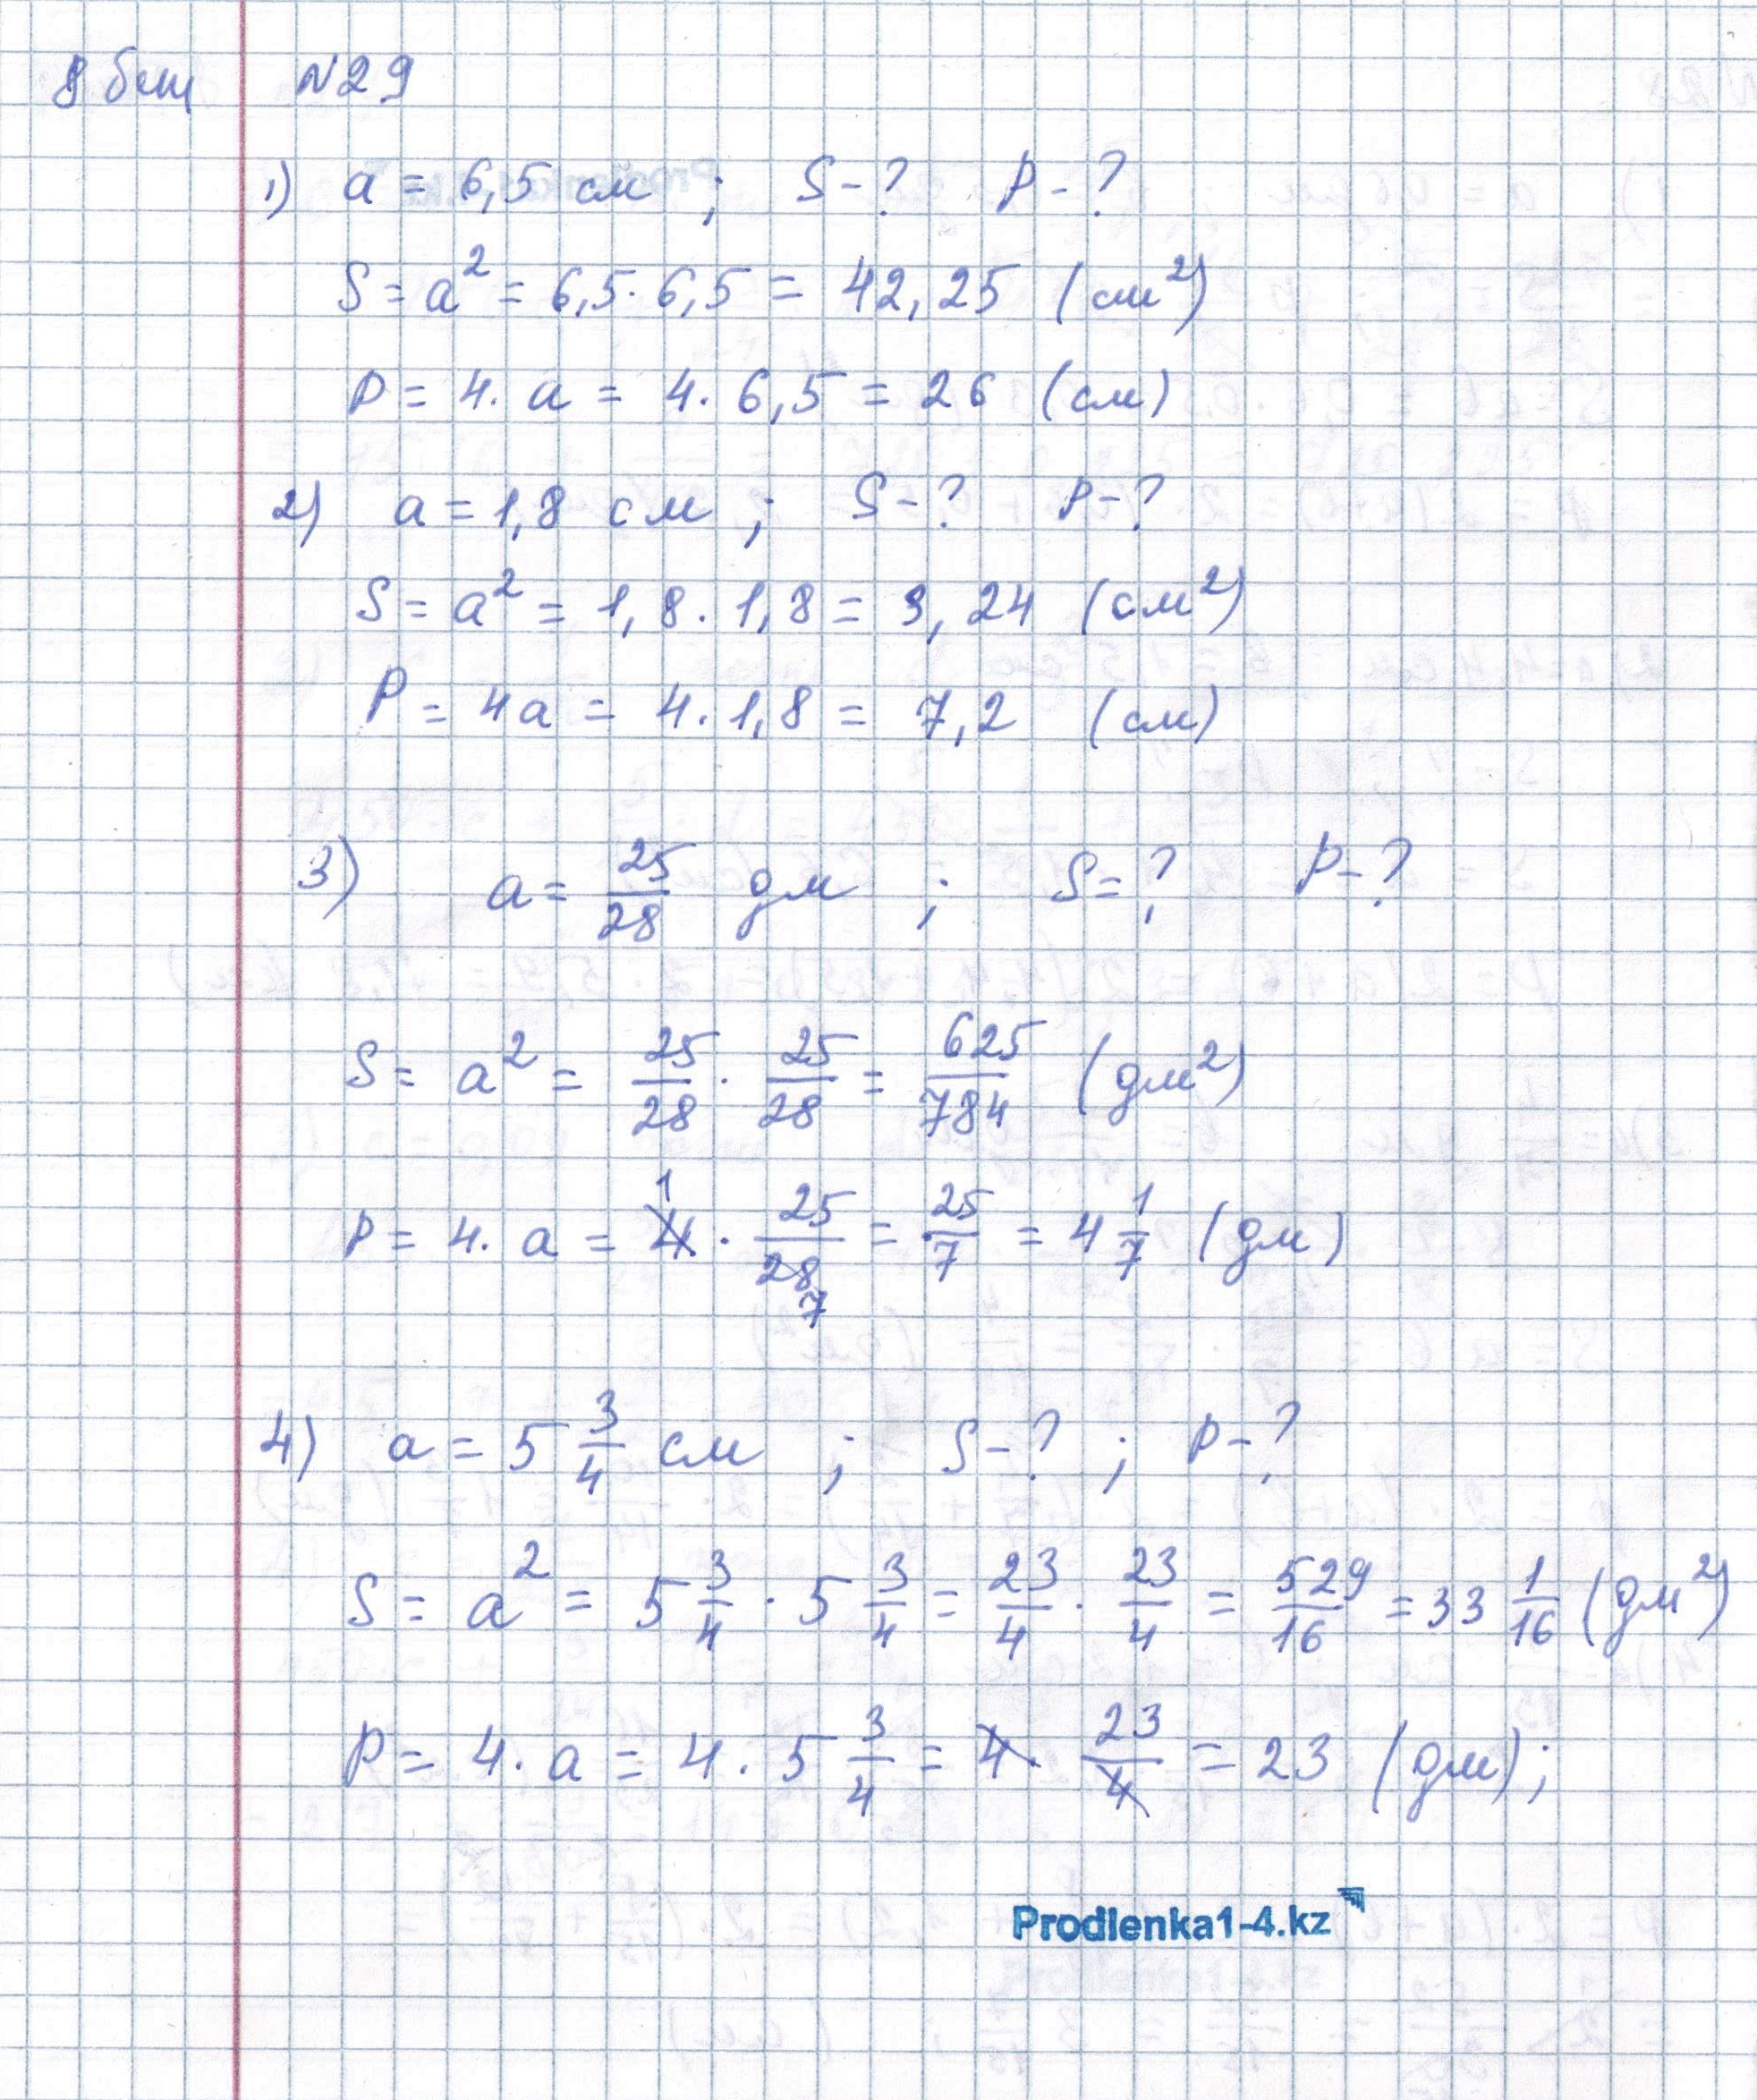 8 бет №29
1) a = 6,5 см ; S-? P-?
S = a² = 6,5 · 6,5 = 42,25 (см²)
P = 4 · a = 4 · 6,5 = 26 (см)
2) a = 1,8 см ; S-? P-?
S = a² = 1,8 · 1,8 = 3,24 (см²)
P = 4a = 4 · 1,8 = 7,2 (см)
3) a = 25/28 дм ; S=? P-?
S = a² = 25/28 · 25/28 = 625/784 (дм²)
P = 4 · a = 4 1 · 25/28 7 = 25/7 = 4 1/7 (дм)
4) a = 5 3/4 см ; S-? ; P-?
S = a² = 5 3/4 · 5 3/4 = 23/4 · 23/4 = 529/16 = 33 1/16 (дм²)
P = 4 · a = 4 · 5 3/4 = 4 · 23/4 = 23 (дм);
Prodlenka1-4.kz